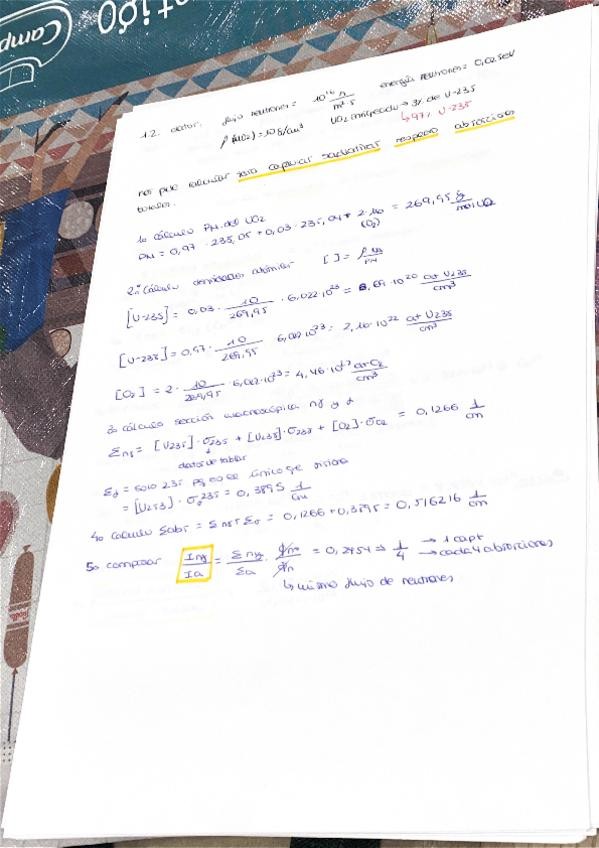 Camp
tigo
1.2. datos: flujo neutrones = 10¹⁶ n / m²·s energía neutrones = 0,025eV
ρ(UO₂) = 10 g/cm³ UO₂ enriquecido → 3% de U-235
↳ 97% U-238
nos pide calcular tasa capturas radiativas respecto absorciones
totales.
1o cálculo PM del UO₂
PM = 0,97 · 238,05 + 0,03 · 235,04 + 2·16 = 269,95 g / mol UO₂
(O₂)
2o Cálculo densidades atómicas [ ] = ρ·NA / PM
[U-235] = 0,03 · 10 / 269,95 · 6,022·10²³ = 6,69·10²⁰ at U235 / cm³
[U-238] = 0,97 · 10 / 269,95 · 6,022·10²³ = 2,16·10²² at U238 / cm³
[O₂] = 2 · 10 / 269,95 · 6,022·10²³ = 4,46·10²² at O₂ / cm³
3o cálculo sección macroscópica nγ y f
Σnγ = [U235]·σ235 + [U238]·σ238 + [O₂]·σO₂ = 0,1266 1/cm
datos de tablas
Σf = solo 235 pq es el único que fisiona
= [U253] · σ235 = 0,3895 1/cm
4o calculo Σabs = Σnγ + Σf = 0,1266 + 0,3895 = 0,516216 1/cm
5o comparar Inγ / Ia = Σnγ / Σa · ϕn / ϕn = 0,2454 ⇒ 1/4 → 1 capt
→ cada 4 absorciones
↳ mismo flujo de neutrones